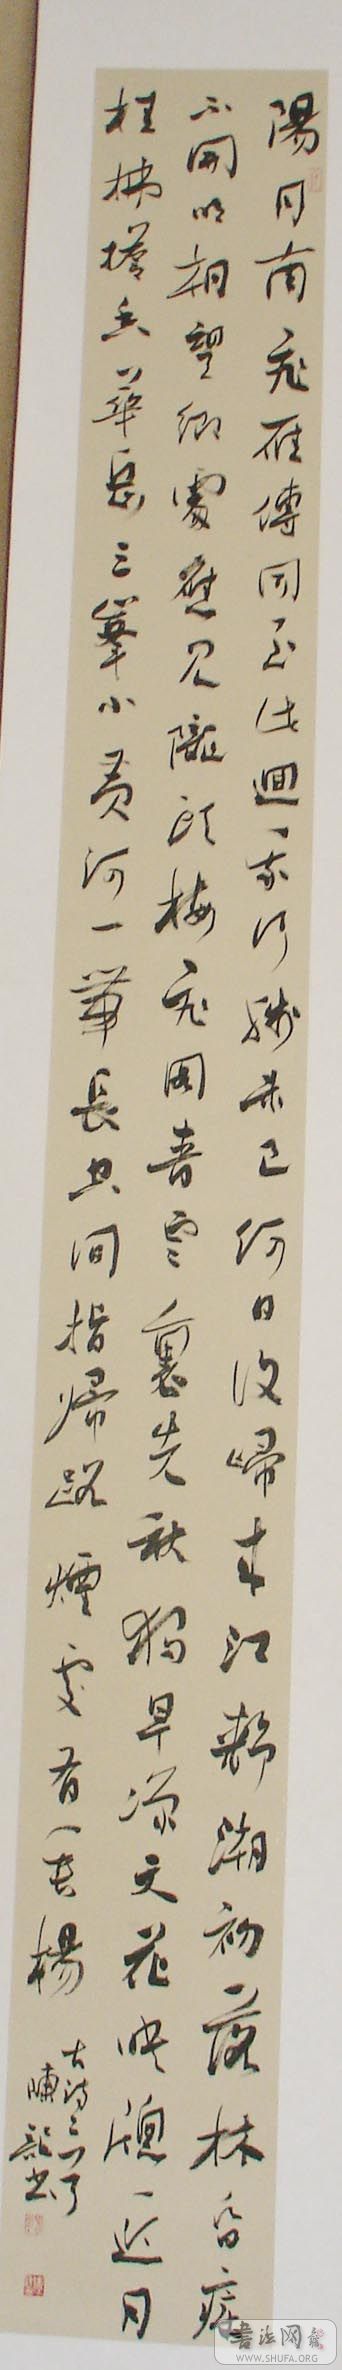 陽月南飛雁傳聞至此迴我行殊未已何日復歸來江静潮初落林昏瘴
不開明朝望鄉處應見隴頭梅飛閣青雲裏先秋獨早涼天花映窗近月
桂拂簷香華岳三峯小黃河一帶長空間指歸路煙處有垂楊
古詩二首
書法网
WWW.SHUFA.ORG